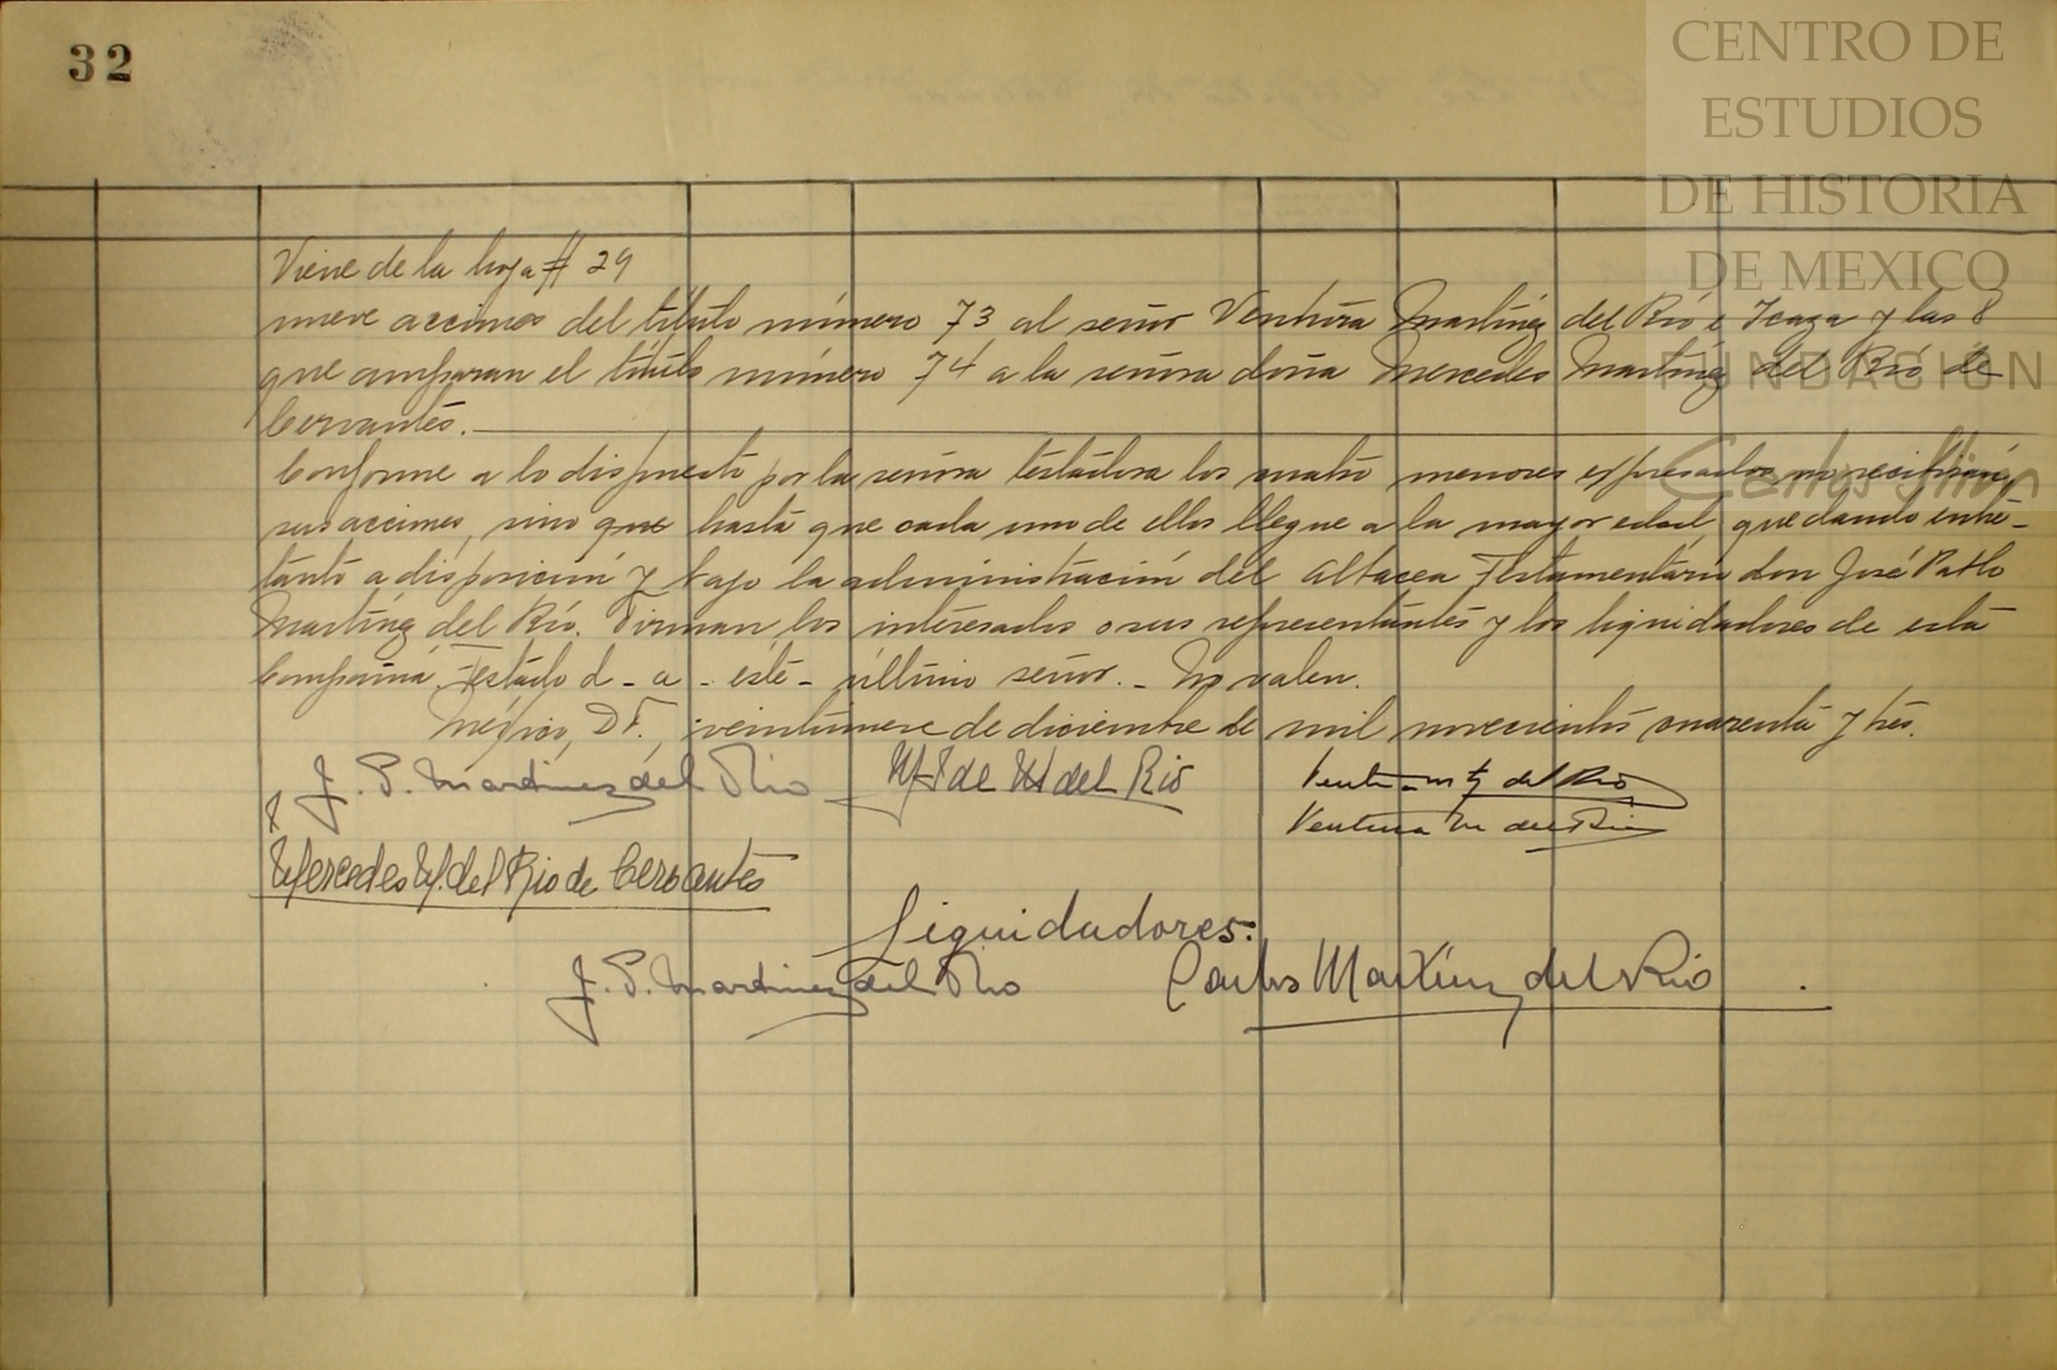 32
CENTRO DE
ESTUDIOS
DE HISTORIA
DE MEXICO
FUNDACIÓN
Carlos Slim
Viene de la hoja # 29
nueve acciones del título número 73 al señor Ventura Martínez del Río e Icaza y las 8
que amparan el título número 74 a la señora doña Mercedes Martínez del Río de
Cervantes.
Conforme a lo dispuesto por la señora testadora los cuatro menores expresados no recibirán
sus acciones, sino que hasta que cada uno de ellos llegue a la mayor edad, quedando entre-
tanto a disposición y bajo la administración del Albacea Testamentario don José Pablo
Martínez del Río. Firman los interesados o sus representantes y los liquidadores de esta
Compañía. Testado d - a - este - último señor. - No valen.
México, D.F., veintinueve de diciembre de mil novecientos cuarenta y tres.
J. P. Martinez del Rio
M de M del Rio
Ventura Mtz del Rio
Ventura M del Rio
Mercedes M. del Rio de Cervantes
Liquidadores:
J. P. Martinez del Rio
Carlos Martínez del Rio